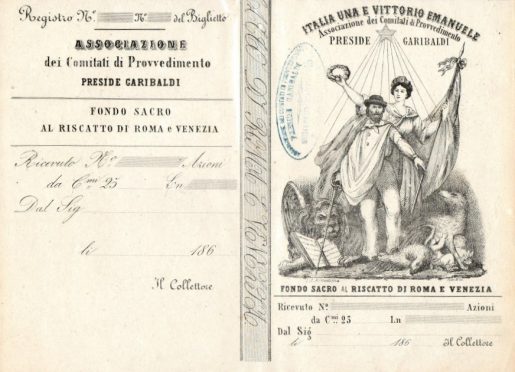 Registro N.º N.º del Biglietto
ASSOCIAZIONE
dei Comitati di Provvedimento
PRESIDE GARIBALDI
FONDO SACRO
AL RISCATTO DI ROMA E VENEZIA
Ricevuto N.º Azioni
da C.mi 25 Ln
Dal Sig
li 186
Il Collettore
ITALIA UNA E VITTORIO EMANUELE
Associazione dei Comitati di Provvedimento
PRESIDE GARIBALDI
FONDO SACRO AL RISCATTO DI ROMA E VENEZIA
Ricevuto N.º Azioni
da C.mi 25 Ln
Dal Sig
li 186 Il Collettore